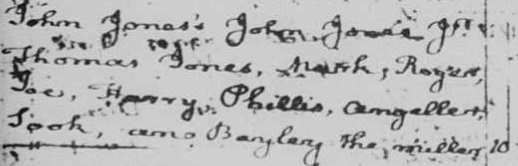 John Jones's John Jones Jr.
Thomas Jones, Mark, Roger,
Joe, Harry, Phillis,
Took, Bayley the miller 10